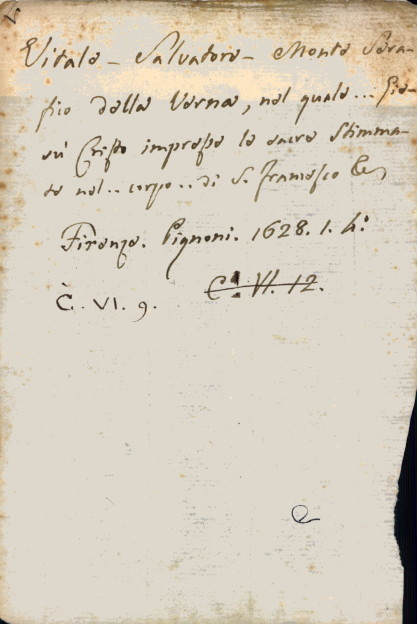 Vitale - Salvadore - Monte Sera-
fico della Verna, nel quale ... Gie-
sù Cristo impresse le sacre Stimma-
te nel .. corpo .. di S. Francesco &c
Firenze. Pignoni. 1628. 1. 4:
C. VI. 9. C. VI. 12.